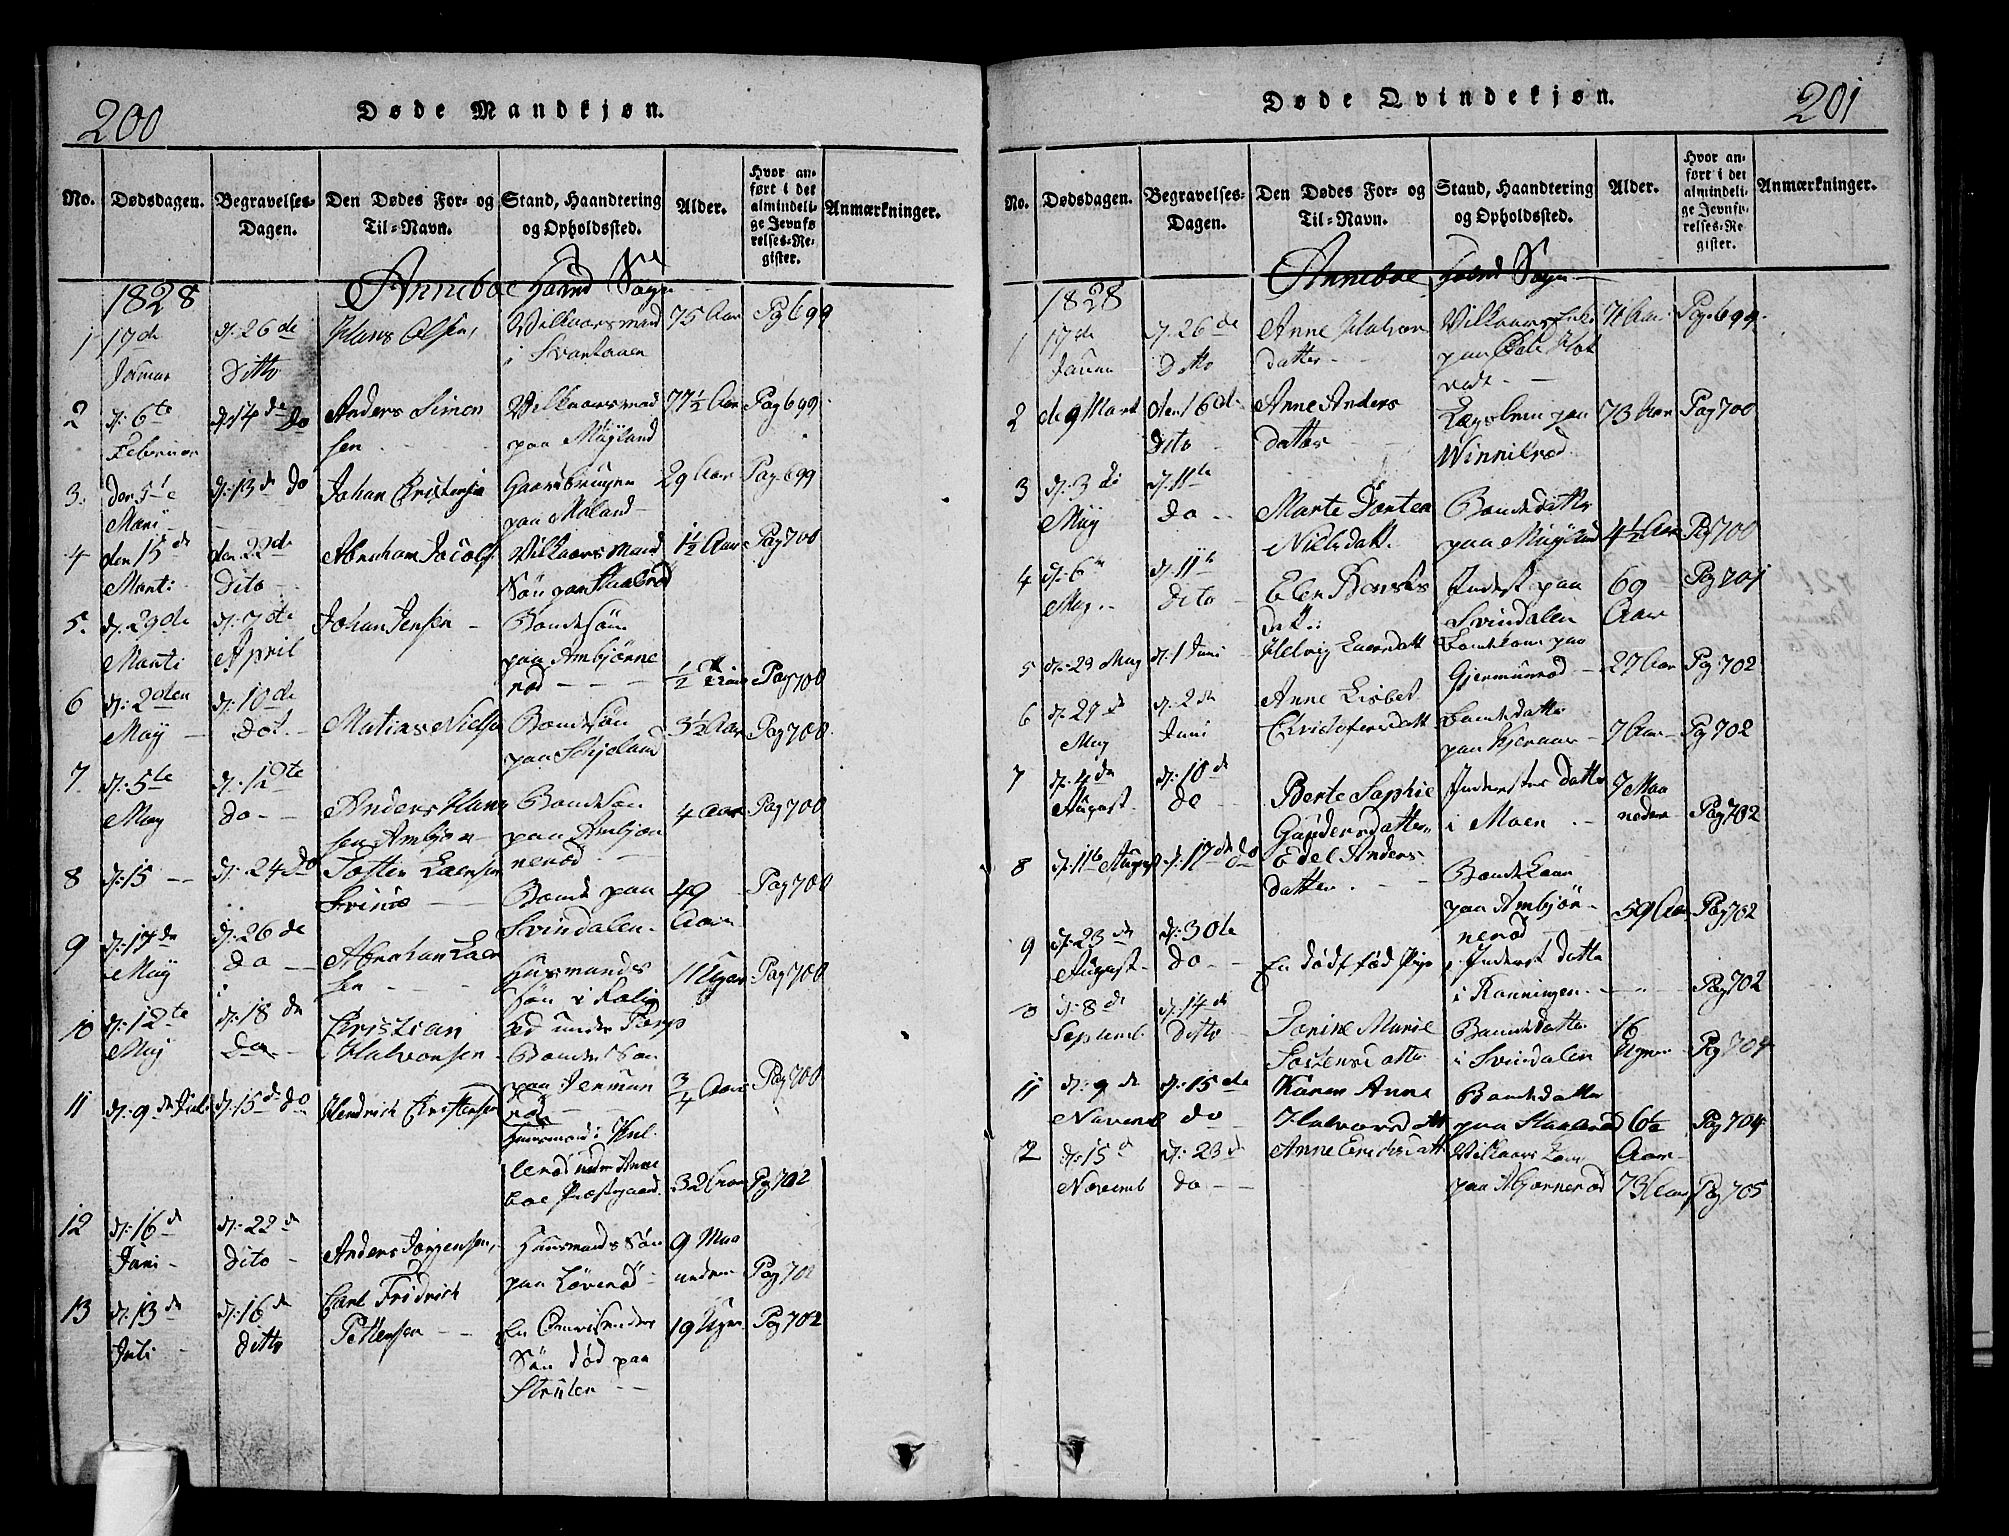 200
Døde Mandkjøn.
No.
Dødsdagen.
Begravelses-
Dagen.
Den Dødes For- og
Til-Navn.
Stand, Haandtering
og Opholdssted.
Alder.
Hvor an-
ført i det
almindeli-
ge Jevnfø
relses-Re-
gister.
Anmærkninger.
1828
Anneboe Hoved Sogn
1
17de
Januar
d: 26de
Ditto
Hans Olsen,
Vilkaarsmand
i
75 Aar
Pag 699
2
d: 6te
Februar
d: 14de do
Anders Simon
sen
Vilkaarsmand
paa Müyland
77½ Aar
Pag 699
3.
den 5te
d: 13de do
Johan Cristensen
Gaardbruger
paa Moland
29 Aar
Pag 699
4
den 15de
Marti
den 22de
Dito
Abraham Jacobs
Vilkaarsmand
Søn paa
1½ Aar
Pag 700
5.
d. 29de
Marti
d: 7de
April
Johan Jensen
Bondesøn
paa Ambjørne
rød
½
Pag 700
6
d: 2den
May
d: 10de
Dot.
Matias Nielsen
Bondesøn
paa
3½ Aar
Pag 700
7.
d: 5te
May
d: 12te
do
Anders Hans
sen Ambjør
Bondesøn
paa Ambjør
nerød
4 Aar
Pag 700
8
d: 15
d: 24 do
Bonde paa
Svindalen
49
Aar
Pag 700
9
d: 17de
May
d: 26de
Do
Abraham Lar
sen
Huusmands
Søn i
under Torp
11 Uger
Pag 700
10
d: 12te
May
d: 18de
Do
Cristian
Halvorsen
Bonde Søn
paa Jermun
rød
¾ Aar
Pag 700
11
d: 9de Juli
d: 15de do
Hendrich Cristensen
Huusmand i
lerød under Anne
boe Præstgaard
32 Aar
Pag 702
12
d: 16de
Juni
d: 22de
Dito
Anders Jørgensen,
Huusmands Søn
paa Løverød
9 Maa
neder
Pag 702
13
d: 13de
Juli
d: 16de
Ditto
Carl Fridrich
Pettersen
En
Søn død paa
19 Uger
Pag 702
201
Døde Qvindekjøn.
No.
Dødsdagen.
Begravelses-
Dagen.
Den Dødes For- og
Til-Navn.
Stand, Haandtering
og Opholdssted.
Alder.
Hvor an-
ført i det
almindeli-
ge Jevnfø-
relses-Re-
gister.
Anmærkninger.
1828
Anneboe Hoved Sogn
1
17de
Januar
d: 26de
Ditto
Anne Halvors
datter
Vilkaars Enke
paa
71 Aar
Pag. 699
2
de 9 Mart
den 16de
Dito
Anne Anders
datter
Lægslem paa
Winnilrød
73 Aar
Pag 700
3
d: 3de
May
d. 11te
do
Marte Dorten
Nielsdatt.
Bondedatter
paa Müyland
4½ Aar
Pag 700
4
d: 6te
May
d. 11te
Dito
Elen
datt:
Inderst paa
Svindalen
69
Aar
Pag 701
5
d: 29 May
d. 1 Juni
Helvig Larsdatt
Bondekone paa
Gjermunrød
27 Aar
Pag: 702
6
d: 27de
May
d: 2de
Juni
Anne Lisbet
Cristofersdatt
Bondedatter
paa
7 Aar
Pag 702
7
d: 4de
August
d: 10de
do
Berte Sophie
Gundersdatter
Inderstes Datter
i Moen
7 Maa
neder
Pag 702
8
d: 11te August
d: 17de do
Edel Anders
datter.
Bondekone
paa Ambjør-
nerød
59 Aar
Pag 702
9
d: 23de
August
d: 30te
do
En dødfød Pige
Inderst datter
i Ronningen
Pag 702
d: 8de
Septemb.
d: 14de
Ditto
Sorine Marie
Tostensdatter
Bondedatter
i Svindalen
16
Uger
Pag 704
11
d: 9de
Novemb
d: 15de
do
Karen Anne
Halvorsdatt
Bondedatter
paa
6½
Aar
Pag 704
12
d: 15d
Novemb
d: 23d
do
Anne Ericksdatt
Vilkaars Kone
paa
73 Aar
Pag 705